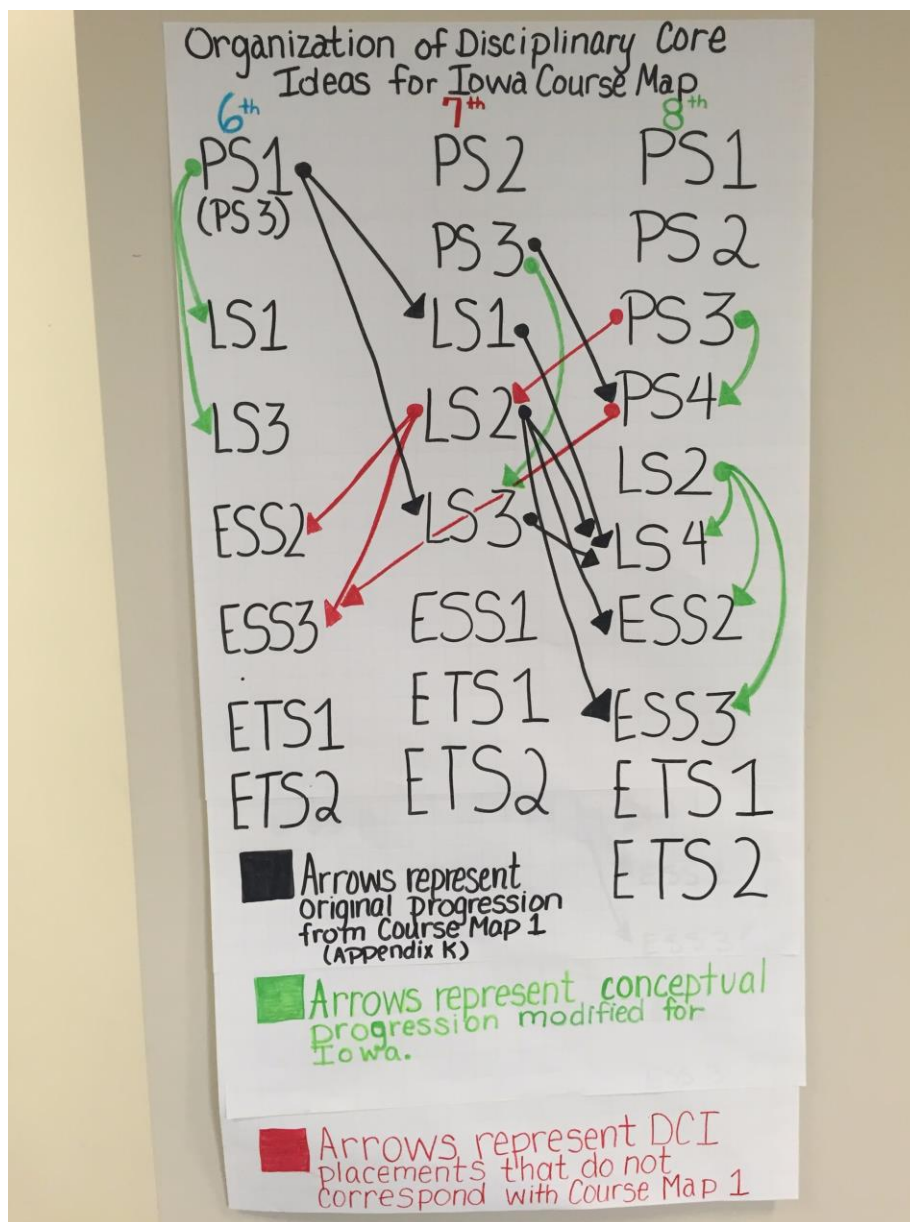 Organization of Disciplinary Core
Ideas for Iowa Course Map
6th
7th
8th
PS1
(PS3)
LS1
LS3
ESS2
ESS3
ETS1
ETS2
PS2
PS3
LS1
LS2
LS3
ESS1
ETS1
ETS2
PS1
PS2
PS3
PS4
LS2
LS4
ESS2
ESS3
ETS1
ETS2
Arrows represent
original progression
from Course Map 1
(APPendix K)
Arrows represent conceptual
progression modified for
Iowa.
Arrows represent DCI
placements that do not
correspond with Course Map 1